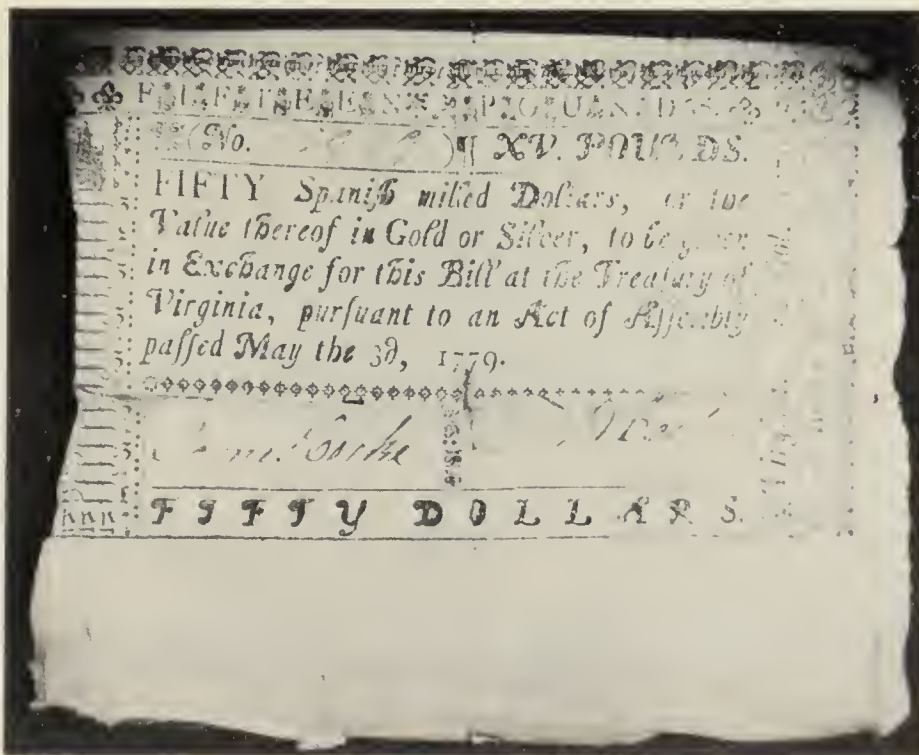 FIFTEEN POUNDS
(No. ) XV. POUNDS.
FIFTY Spaniſh milled Dollars, or the
Value thereof in Gold or Silver, to be given
in Exchange for this Bill at the Treaſury of
Virginia, purſuant to an Act of Aſſembly
paſſed May the 3d, 1779.
Cocke
FIFTY DOLLARS.